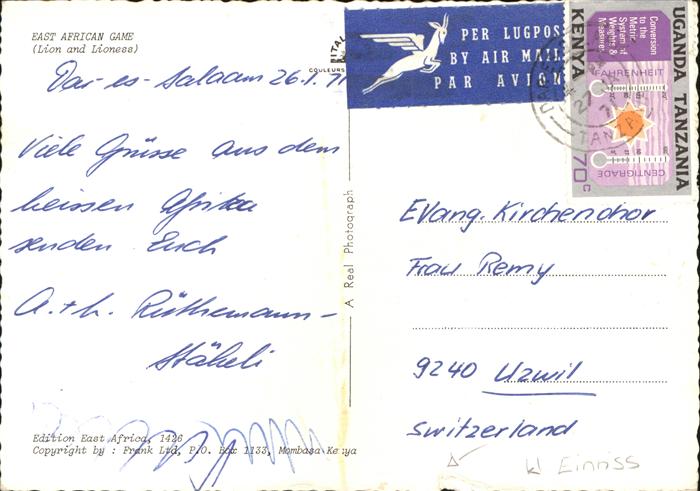 EAST AFRICAN GAME
(Lion and Lioness)
Dar-es-Salaam 26.1.71
Viele Grüsse aus dem
heissen Afrika
senden Euch
A. + h. Rüthemann-
Stäheli
Edition East Africa, 1426
Copyright by : Frank Ltd, P.O. Box 1133, Mombasa Kenya
A Real Photograph
COULEURS
PER LUGPOS
BY AIR MAIL
PAR AVION
UGANDA TANZANIA
KENYA
Conversion
to the
Metric
System of
Weights &
Measures
FAHRENHEIT
CENTIGRADE
70c
Evang. Kirchenchor
Frau Remy
9240 Uzwil
Switzerland
Einriss